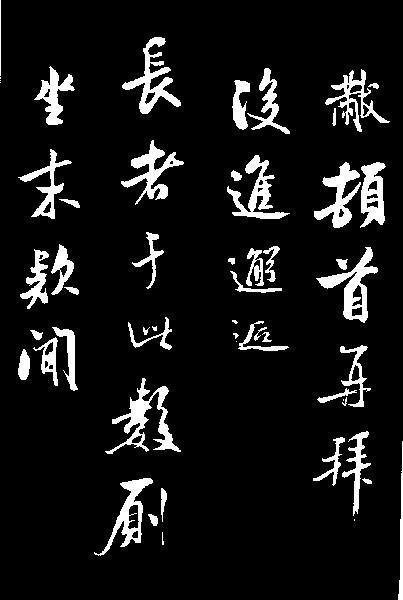 黻頓首再拜
後進邂逅
長者于此數厠
坐末欵聞